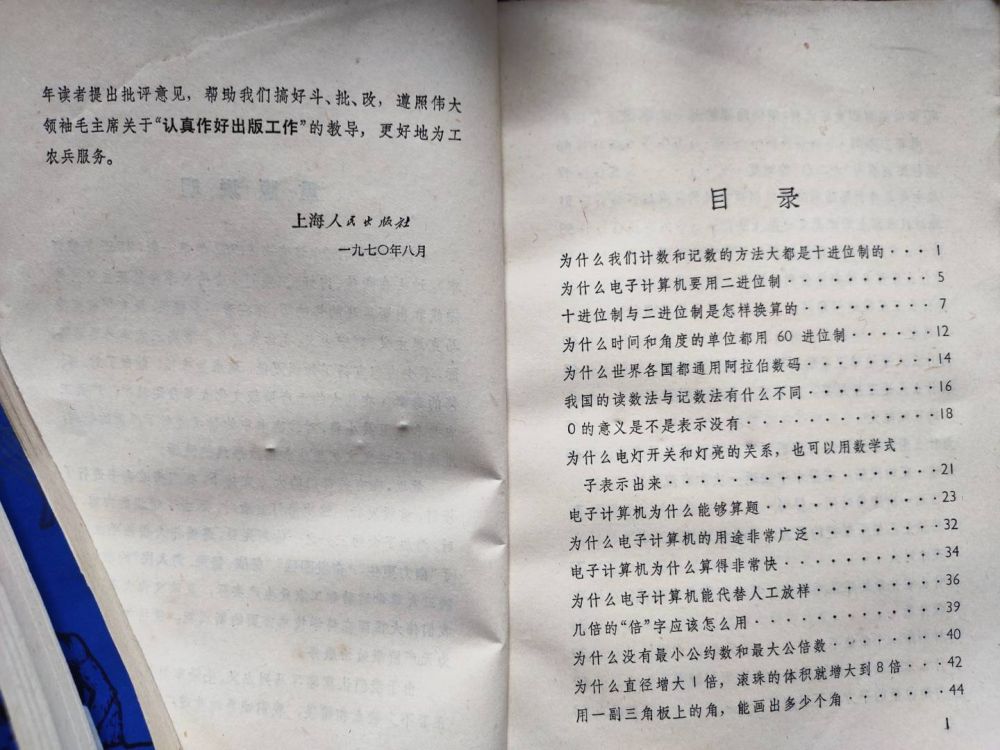 年读者提出批评意见，帮助我们搞好斗、批、改，遵照伟大
领袖毛主席关于“认真作好出版工作”的教导，更好地为工
农兵服务。
上海人民出版社
一九七〇年八月
目 录
为什么我们计数和记数的方法大都是十进位制的···1
为什么电子计算机要用二进位制·········5
十进位制与二进位制是怎样换算的········7
为什么时间和角度的单位都用 60 进位制·····12
为什么世界各国都通用阿拉伯数码········14
我国的读数法与记数法有什么不同········16
0的意义是不是表示没有···········18
为什么电灯开关和灯亮的关系，也可以用数学式
子表示出来················21
电子计算机为什么能够算题··········23
为什么电子计算机的用途非常广泛·······32
电子计算机为什么算得非常快·········34
为什么电子计算机能代替人工放样·······36
几倍的“倍”字应该怎么用··········39
为什么没有最小公约数和最大公倍数······40
为什么直径增大1倍，滚珠的体积就增大到8倍···42
用一副三角板上的角，能画出多少个角······44
1